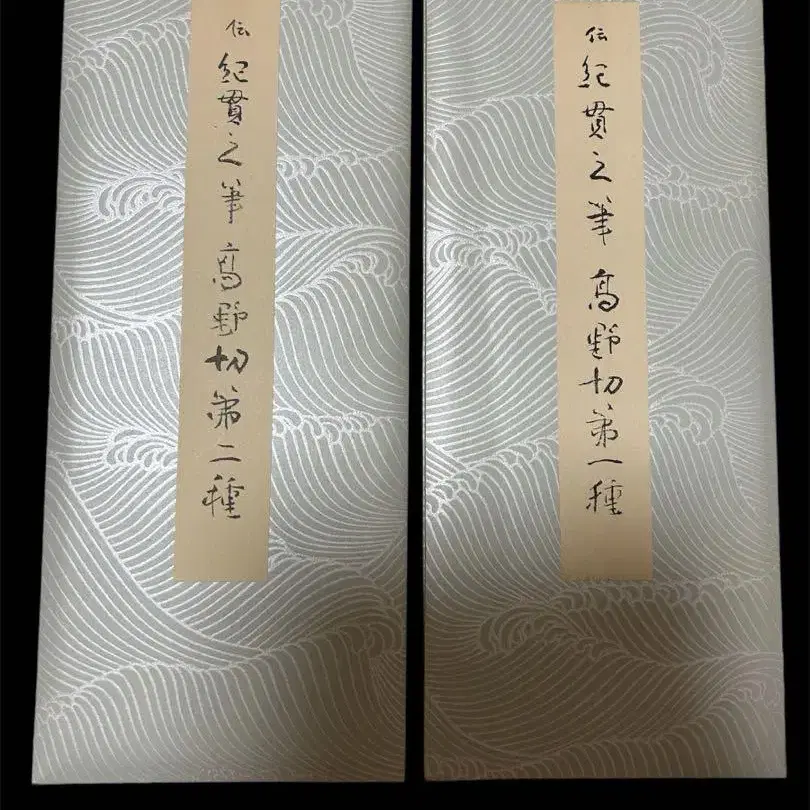 伝紀貫之筆高野切第一種
伝紀貫之筆高野切第二種